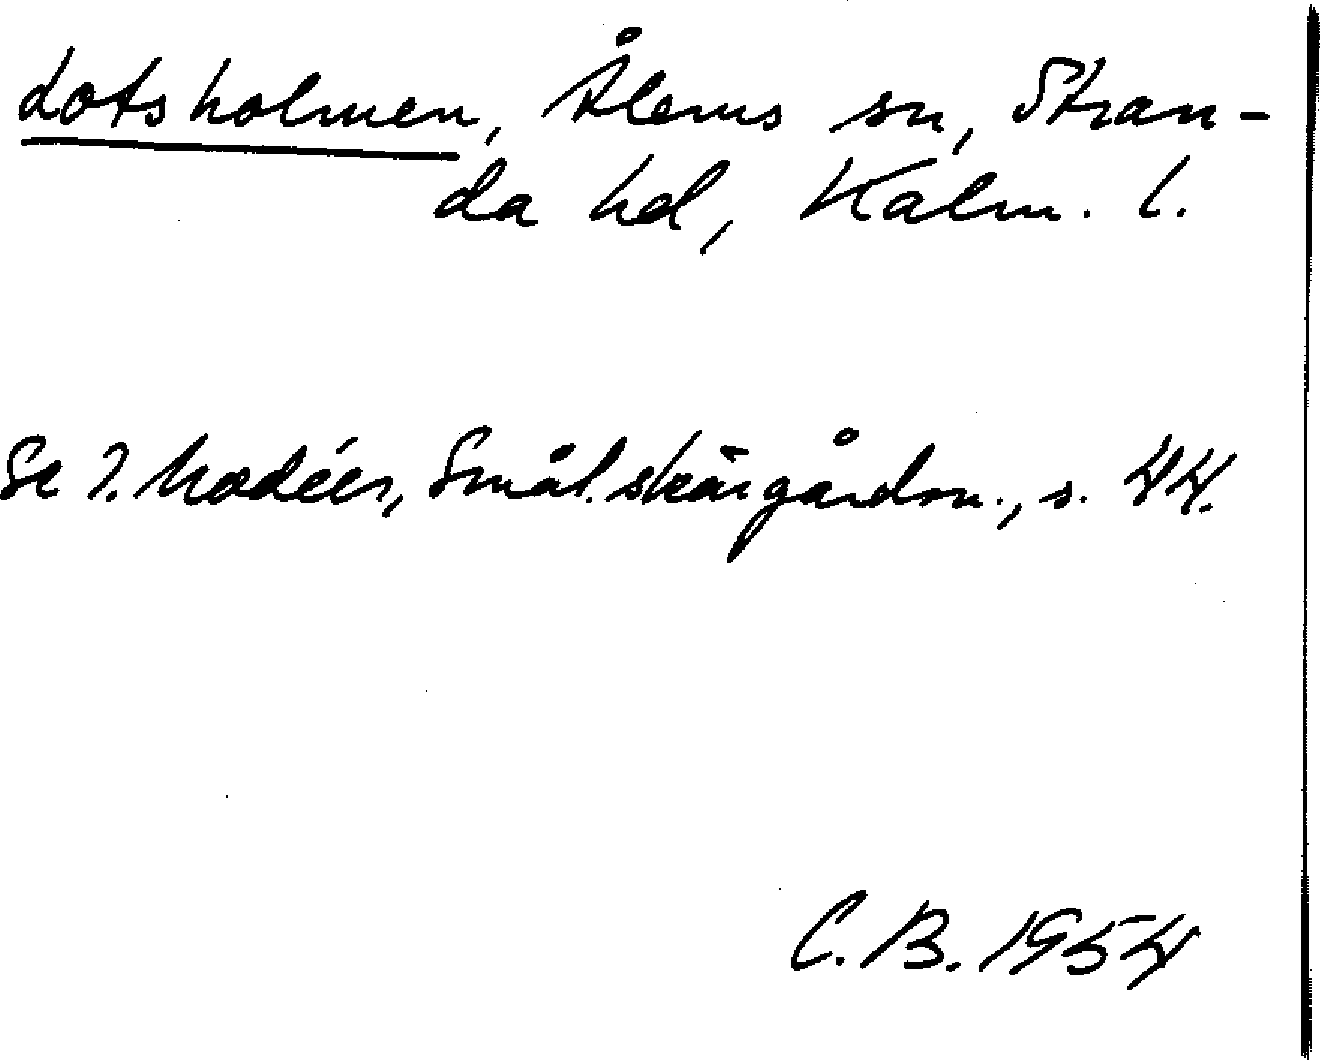 Lotsholmen, Ålems sn, Stran-
da hd, Kalm. l.
Se I. Modéer, Smål. skärgårdsn., s. 44.
C.B. 1954